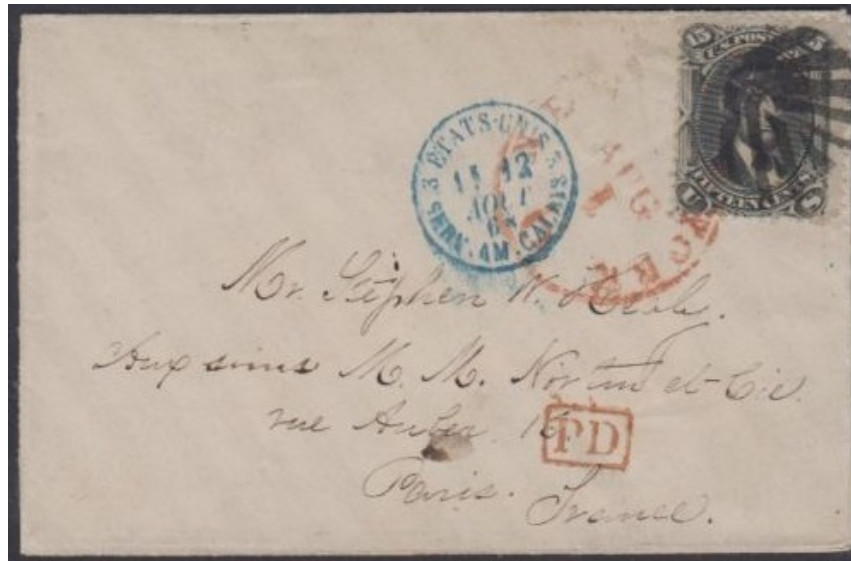 15
U.S. POSTAGE
FIFTEEN CENTS
U S
3 ETATS-UNIS 3
12
AOUT
68
SERV. AM. CALAIS
AUG
YORK
Mr. Stephen W.
Aux soins M. M. Norton et Cie
rue Auber
PD
Paris.
France.